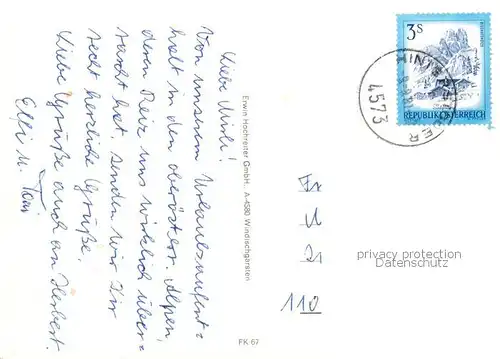 Liebe Mirli!
Von unserem Urlaubsaufent=
halt in den oberösterr. Alpen,
deren Reiz uns wirklich über=
rascht hat, senden wir Dir
recht herzliche Grüße.
Liebe Grüße auch an Herbert.
Elfi u. Toni
Erwin Hochreiner GmbH., A-4580 Windischgarsten
FK 67
3s
REPUBLIK ÖSTERREICH
4573
110
privacy protection
Datenschutz